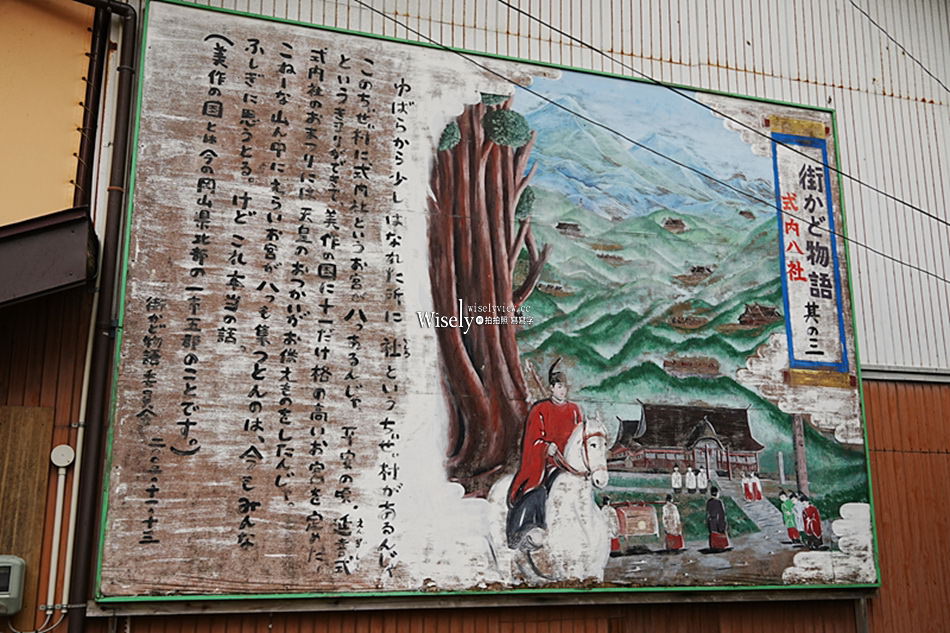 街かど物語 其の三
式内八社
ゆばらから少しはなれた所に 社というちいせえ村があるんじゃ
このちいせえ村に式内社というお宮が八つあるんじゃ 平安の頃・延喜式
というきまりができて、美作の国に十一だけ格の高いお宮を定めた。
式内社のおまつりには天皇のおつかいがお供えものをしたんじゃ。
こねーな山ん中にえらいお宮が八つも集っとんのは、今でもみんな
ふしぎに思うとる。けどこれ本当の話
(美作の国とは今の岡山県北部の一市五郡のことです。)
街かど物語委員会 二〇〇二・十一・十三
Wisely
wiselyview.cc
拍拍照 寫寫字